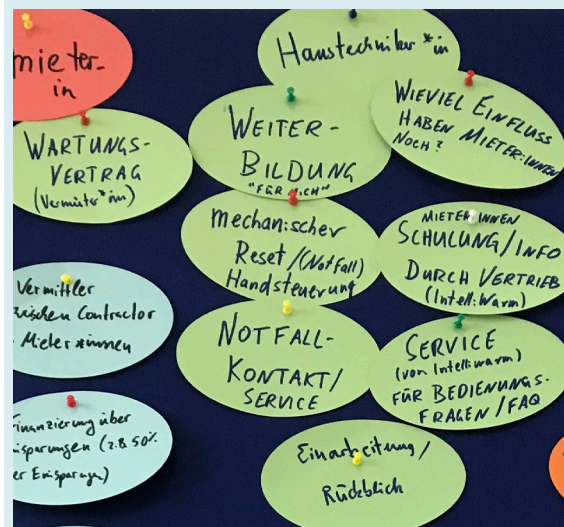 mieter-
in
Haustechniker*in
WARTUNGS-
VERTRAG
(Vermieter*in)
WEITER-
BILDUNG
"FÜR MICH"
WIEVIEL EINFLUSS
HABEN MIETER:INNEN
NOCH?
Mechanischer
Reset/(Notfall)
Handsteuerung
MIETER INNEN
SCHULUNG/INFO
DURCH VERTRIEB
(Intelli:Warm)
Vermittler
zwischen Contractor
Mieter*innen
NOTFALL-
KONTAKT/
SERVICE
SERVICE
(von Intelliwarm)
FÜR BEDIENUNGS-
FRAGEN/FAQ
Finanzierung über
insparungen (z.B 50%
er Einsparungen)
Einarbeitung/
Rückblick